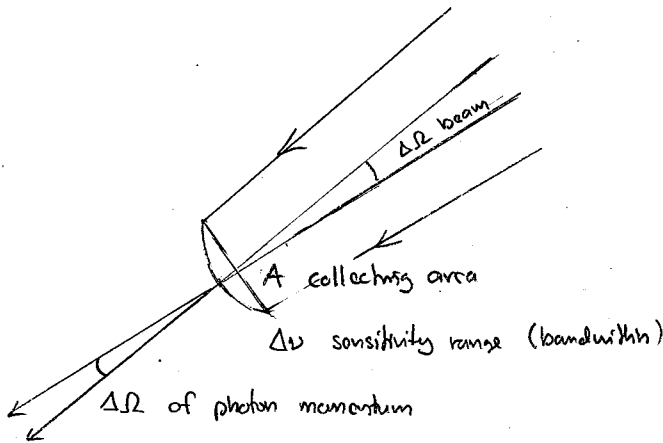 ΔΩ beam
A collecting area
Δν sensitivity range (bandwithn)
ΔΩ of photon momentum